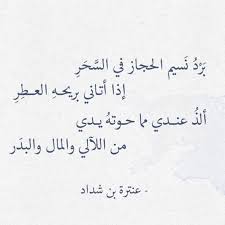 بَرْدُ نَسيم الحجاز في السَّحَرِ
إذا أتاني بريحهِ العـطِرِ
ألذُ عنـدي مما حـوتهُ يـدي
من اللآلي والمال والبدَر
- عنترة بن شداد